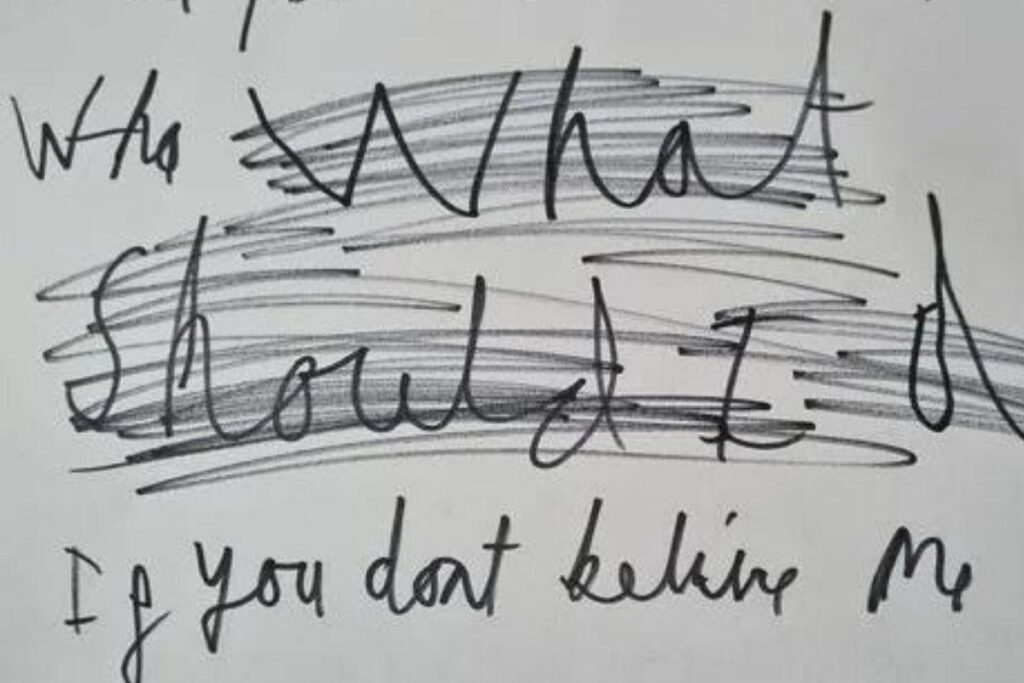 Who What
Should I d
If you dont belive me